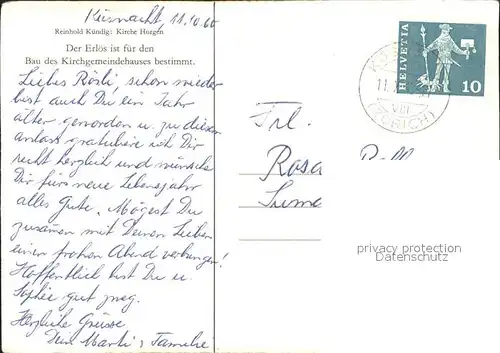 Küsnacht, 11.10.60
Reinhold Kündig: Kirche Horgen
Der Erlös ist für den
Bau des Kirchgemeindehauses bestimmt.
Liebes Rösli, schon wieder
bist auch Du ein Jahr
älter geworden u. zu diesem
Anlass gratuliere ich Dir
recht herzlich und wünsche
Dir fürs neue Lebensjahr
alles Gute. Mögest Du
zusammen mit Deinen Lieben
einen frohen Abend verbringen!
Hoffentlich bist Du u.
Sophie gut zweg.
Herzliche Grüsse
Dein Marti u. Familie
HELVETIA
10
(ZÜRICH)
VIII
Frl.
Rosa
privacy protection
Datenschutz